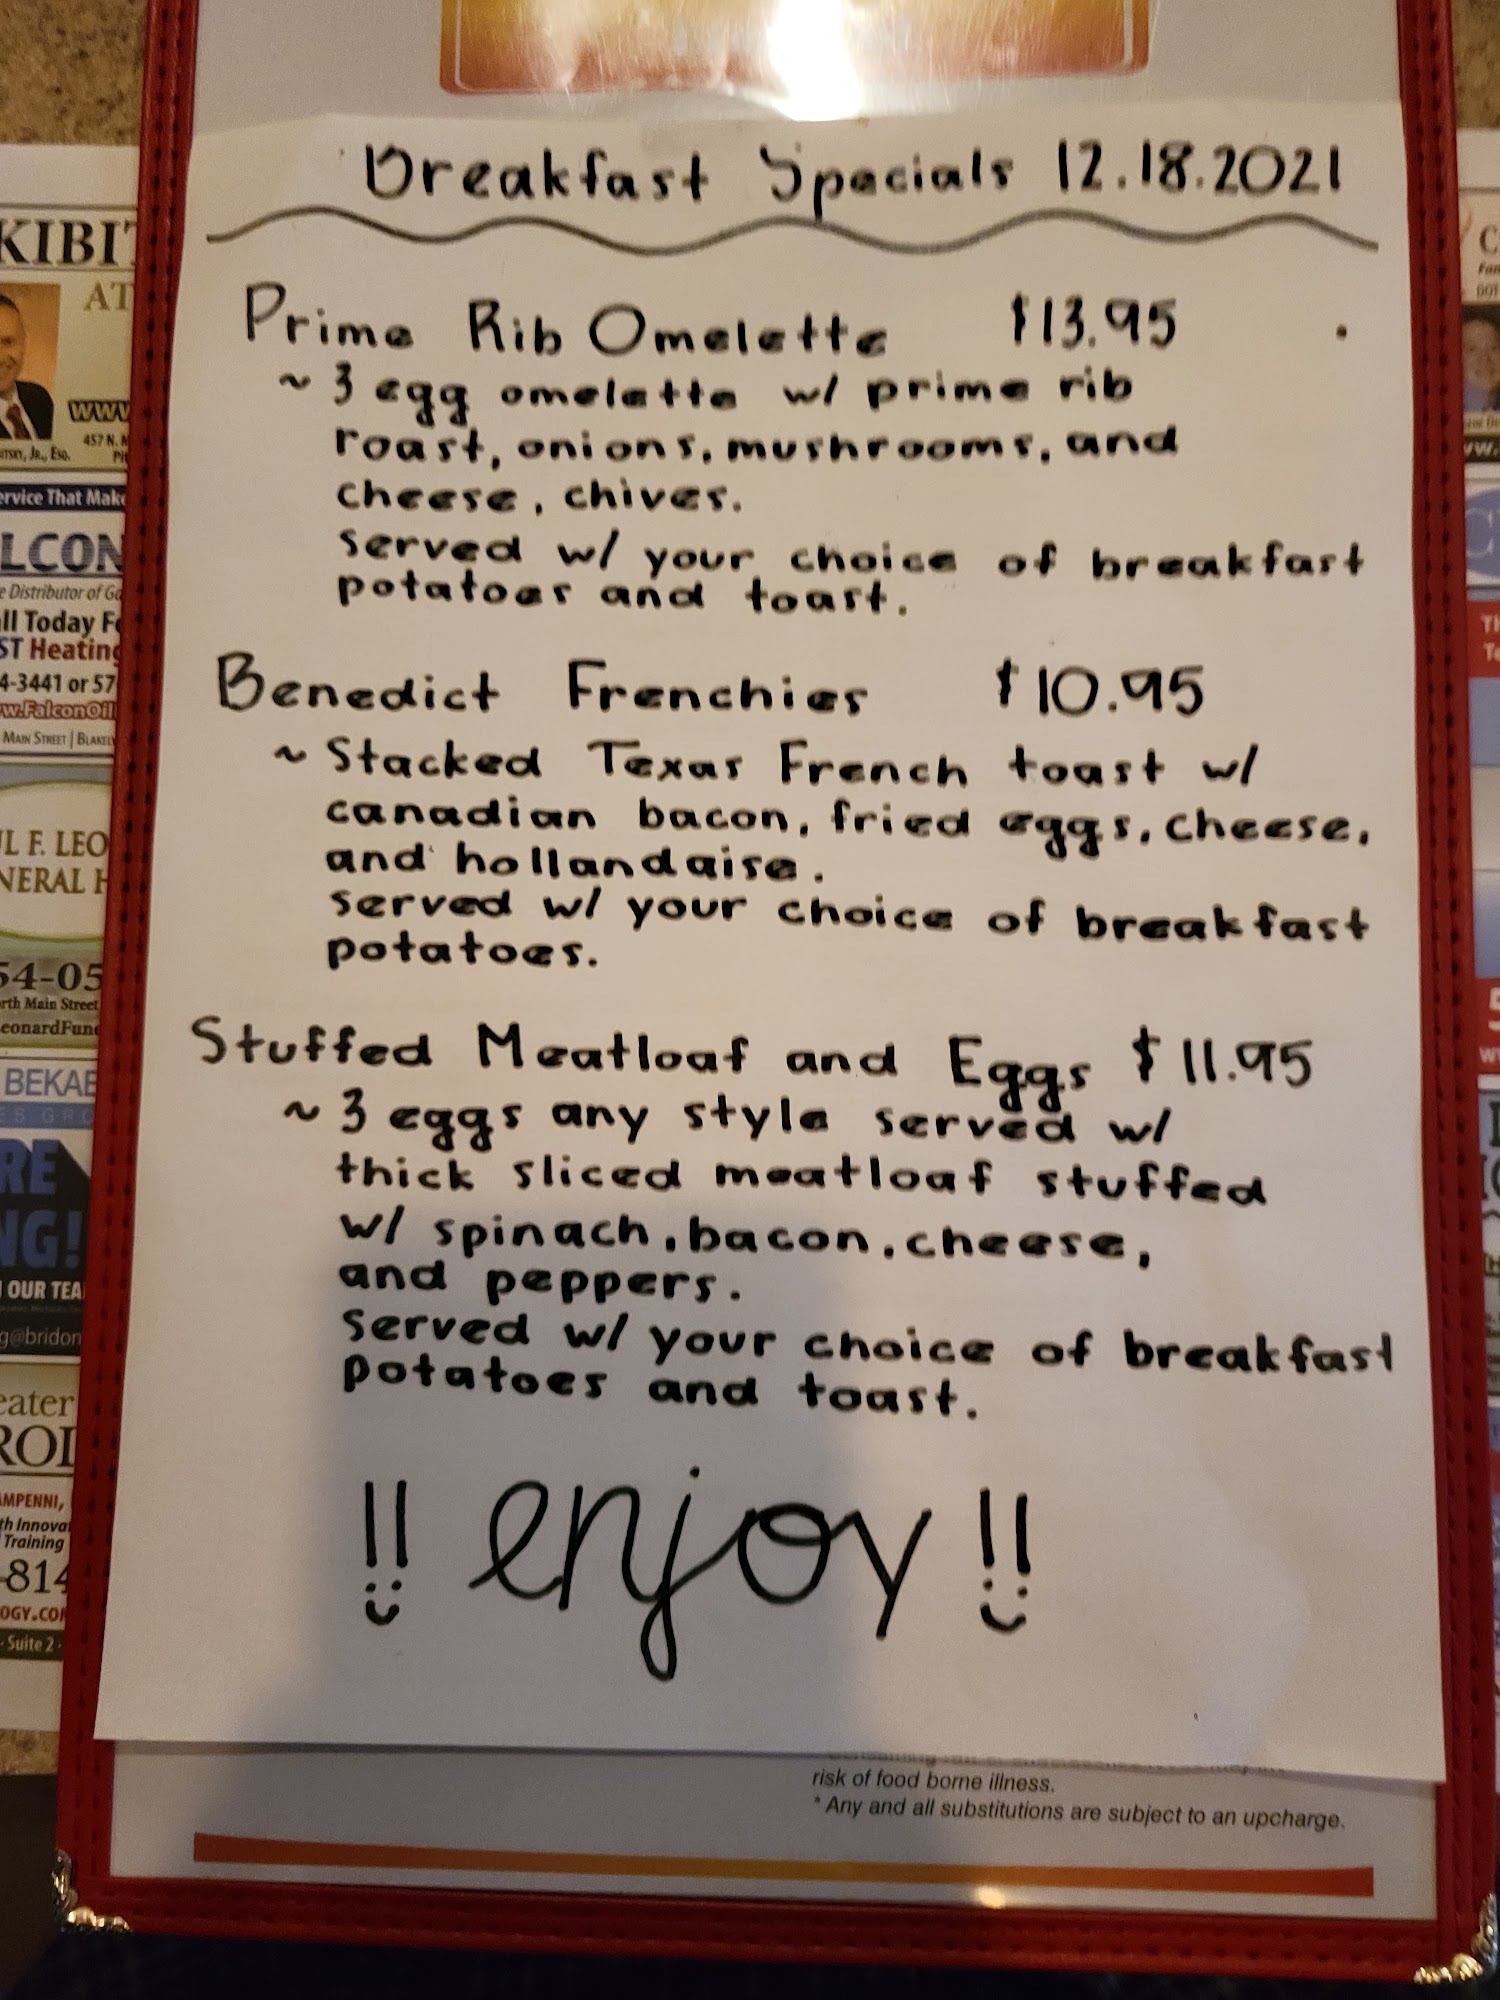 Breakfast Specials 12.18.2021
Prime Rib Omelette $13.95
~ 3 egg omelette w/ prime rib
roast, onions, mushrooms, and
cheese, chives.
served w/ your choice of breakfast
potatoes and toast.
Benedict Frenchies $10.95
~ Stacked Texas French toast w/
canadian bacon, fried eggs, cheese,
and hollandaise.
served w/ your choice of breakfast
potatoes.
Stuffed Meatloaf and Eggs $11.95
~ 3 eggs any style served w/
thick sliced meatloaf stuffed
w/ spinach, bacon, cheese,
and peppers.
served w/ your choice of breakfast
potatoes and toast.
!! enjoy !!
risk of food borne illness.
* Any and all substitutions are subject to an upcharge.
KIBIT
AT
WWW
457 N. M
ervice That Make
LCON
e Distributor of
ll Today
ST Heating
4-3441 or 57
w.FalconOil
MAIN STREET | BLAKEL
L F. LEO
NERAL H
54-05
rth Main Street
eonardFune
BEKAE
RE
NG!
OUR TEA
g@bridon
eater
ROI
AMPENNI,
th Innova
Training
-814
OGY.CO
- Suite 2 -